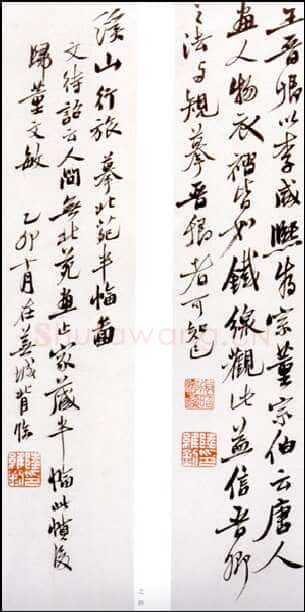 王晉卿以李咸熙為宗董宗伯云唐人
畫人物衣褶皆如鐵線觀此益信晉卿
之法与規摹晉卿者可知已
溪山行旅 摹北苑半幅圖
文待詔云人間無北苑畫止家藏半幅此幀後
歸董文敏 乙卯十月在蕪城背臨
Shufawang.CN